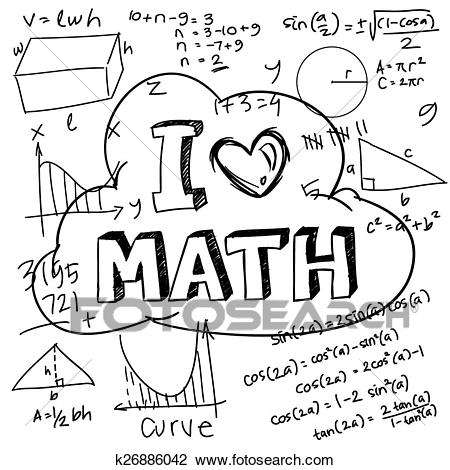 V = l w h
w
h
l
10+n-9=3
n = 3-10+9
n = -7+9
n = 2
sin(a/2) = ±√((1-cosa)/2)
r
A = πr²
C = 2πr
y
z
1+3=4
9
x
x
y
I
MATH
5
a
c
b
c² = a² + b²
3195
721
+
FOTOSEARCH®
sin(2a) = 2sin(a)cos(a)
cos(2a) = cos²(a) - sin²(a)
cos(2a) = 2cos²(a)-1
cos(2a) = 1-2 sin²(a)
tan(2a) = 2tan(a)/1-tan²(a)
h
b
A = 1/2 bh
curve
k26886042 www.fotosearch.com